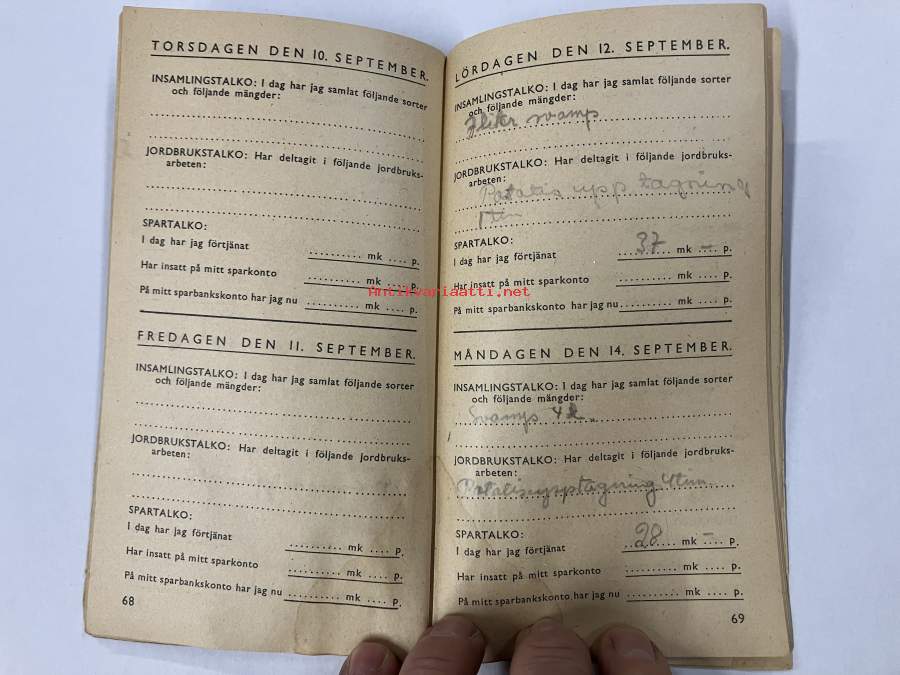 TORSDAGEN DEN 10. SEPTEMBER.
INSAMLINGSTALKO: I dag har jag samlat följande sorter
och följande mängder:
JORDBRUKSTALKO: Har deltagit i följande jordbruks-
arbeten:
SPARTALKO:
I dag har jag förtjänat .......... mk .... p.
Har insatt på mitt sparkonto .......... mk .... p.
På mitt sparbankskonto har jag nu .......... mk .... p.
FREDAGEN DEN 11. SEPTEMBER.
INSAMLINGSTALKO: I dag har jag samlat följande sorter
och följande mängder:
JORDBRUKSTALKO: Har deltagit i följande jordbruks-
arbeten:
SPARTALKO:
I dag har jag förtjänat .......... mk .... p.
Har insatt på mitt sparkonto .......... mk .... p.
På mitt sparbankskonto har jag nu .......... mk .... p.
68
LÖRDAGEN DEN 12. SEPTEMBER.
INSAMLINGSTALKO: I dag har jag samlat följande sorter
och följande mängder:
svamp
JORDBRUKSTALKO: Har deltagit i följande jordbruks-
arbeten:
Potatis upptagning
tim
SPARTALKO:
I dag har jag förtjänat 37 mk – p.
Har insatt på mitt sparkonto .......... mk .... p.
På mitt sparbankskonto har jag nu .......... mk .... p.
MÅNDAGEN DEN 14. SEPTEMBER.
INSAMLINGSTALKO: I dag har jag samlat följande sorter
och följande mängder:
Svamp 4 l.
JORDBRUKSTALKO: Har deltagit i följande jordbruks-
arbeten:
Potatisupptagning 4 tim
SPARTALKO:
I dag har jag förtjänat 28 mk – p.
Har insatt på mitt sparkonto .......... mk .... p.
På mitt sparbankskonto har jag nu .......... mk .... p.
69
Antikvariaatti.net